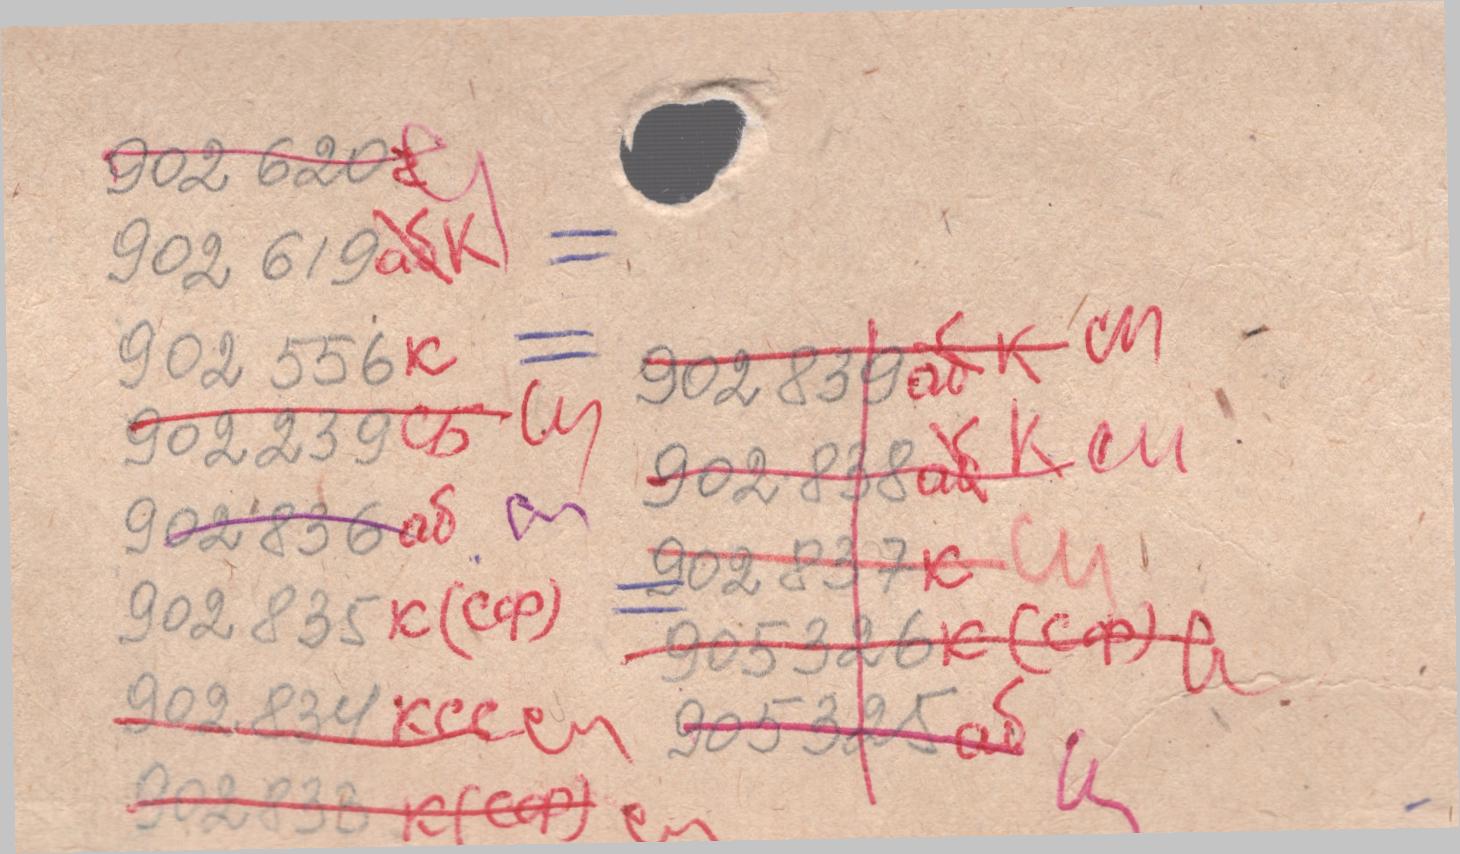 902 620
902 619 аб К
902 556 к
902 239 сб си
902 836 аб сп
902 835 к (сср)
902 834 ксс сп
902 833 к (сср) сп
902 839 аб к сп
902 838 аб К сп
902 837 к си
905 326 к (сср)
905 325 аб